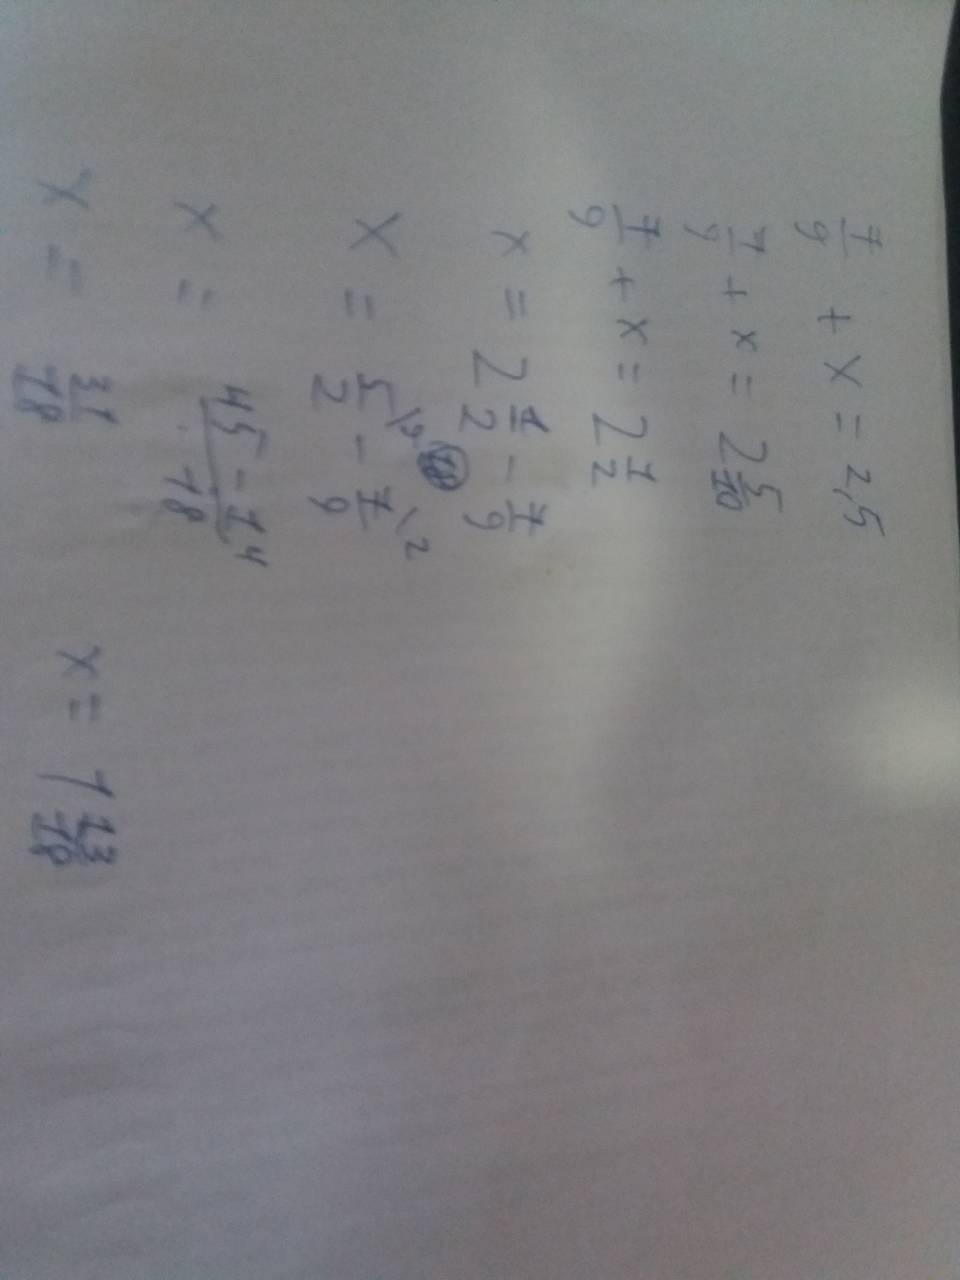 7/9 + x = 2,5
7/9 + x = 2 5/10
7/9 + x = 2 1/2
x = 2 1/2 - 7/9
x = 5/2 \9 - 7/9 \2
x = 45-14/18
x = 31/18 x = 1 13/18